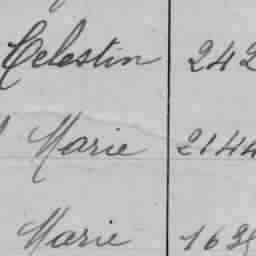 Celestin 242
Marie 2144
Marie 163